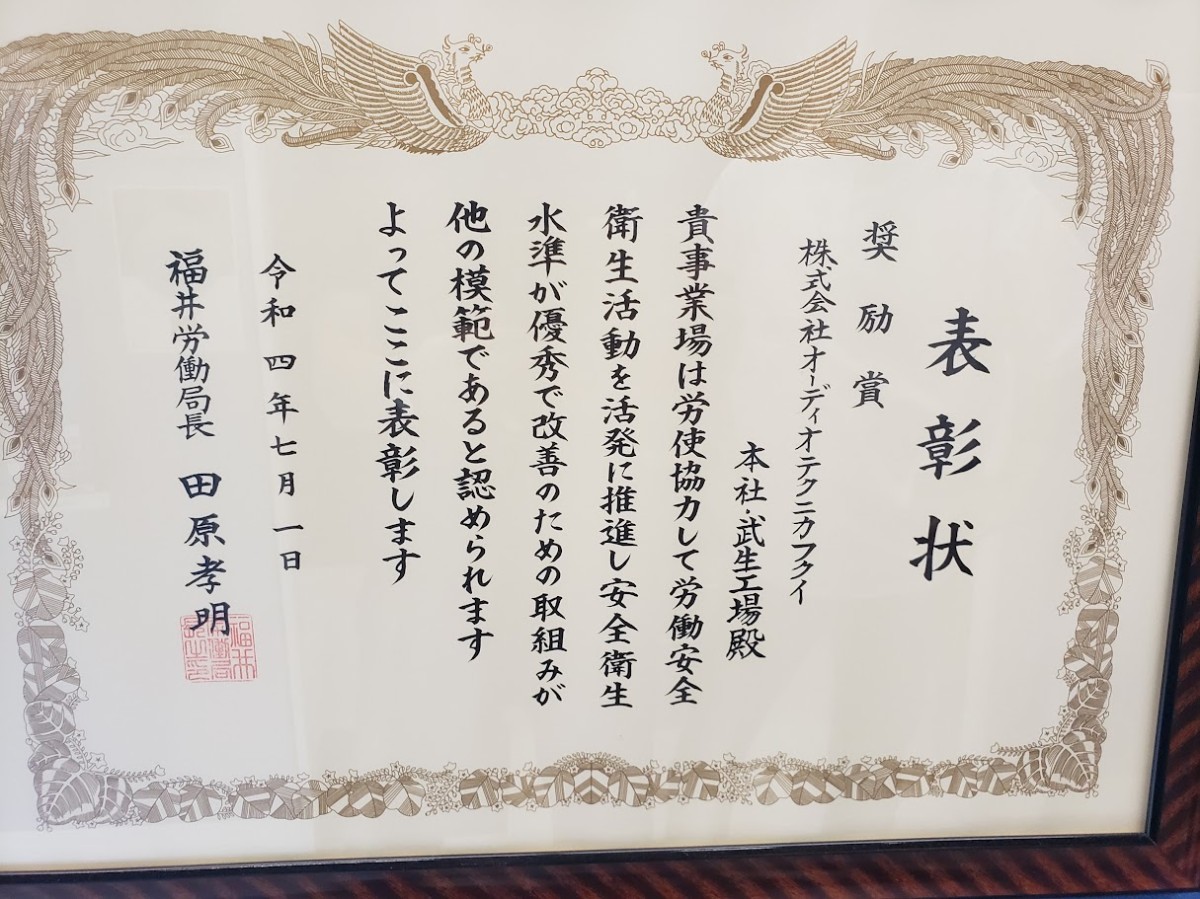 表彰状
奨励賞
株式会社オーディオテクニカフクイ
本社・武生工場殿
貴事業場は労使協力して労働安全
衛生活動を活発に推進し安全衛生
水準が優秀で改善のための取組みが
他の模範であると認められます
よってここに表彰します
令和四年七月一日
福井労働局長 田原孝明